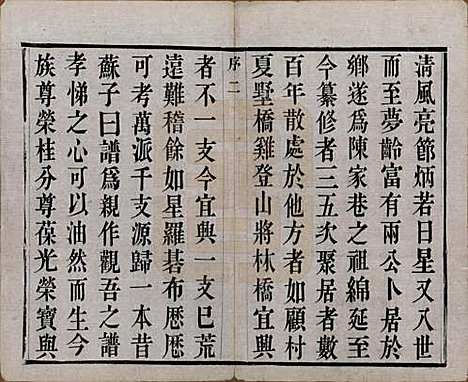 清風亮節炳若日星又八世
而至夢齡富有兩公卜居於
鄉遂爲陳家巷之祖綿延至
今纂修者三五次聚居者數
百年散處於他方者如顧村
夏墅橋雞登山將林橋宜興
序二
者不一支今宜興一支巳荒
遠難稽餘如星羅碁布厯厯
可考萬派千支源歸一本昔
蘇子曰譜爲親作觀吾之譜
孝悌之心可以油然而生今
族尊榮桂分尊葆光榮寶與